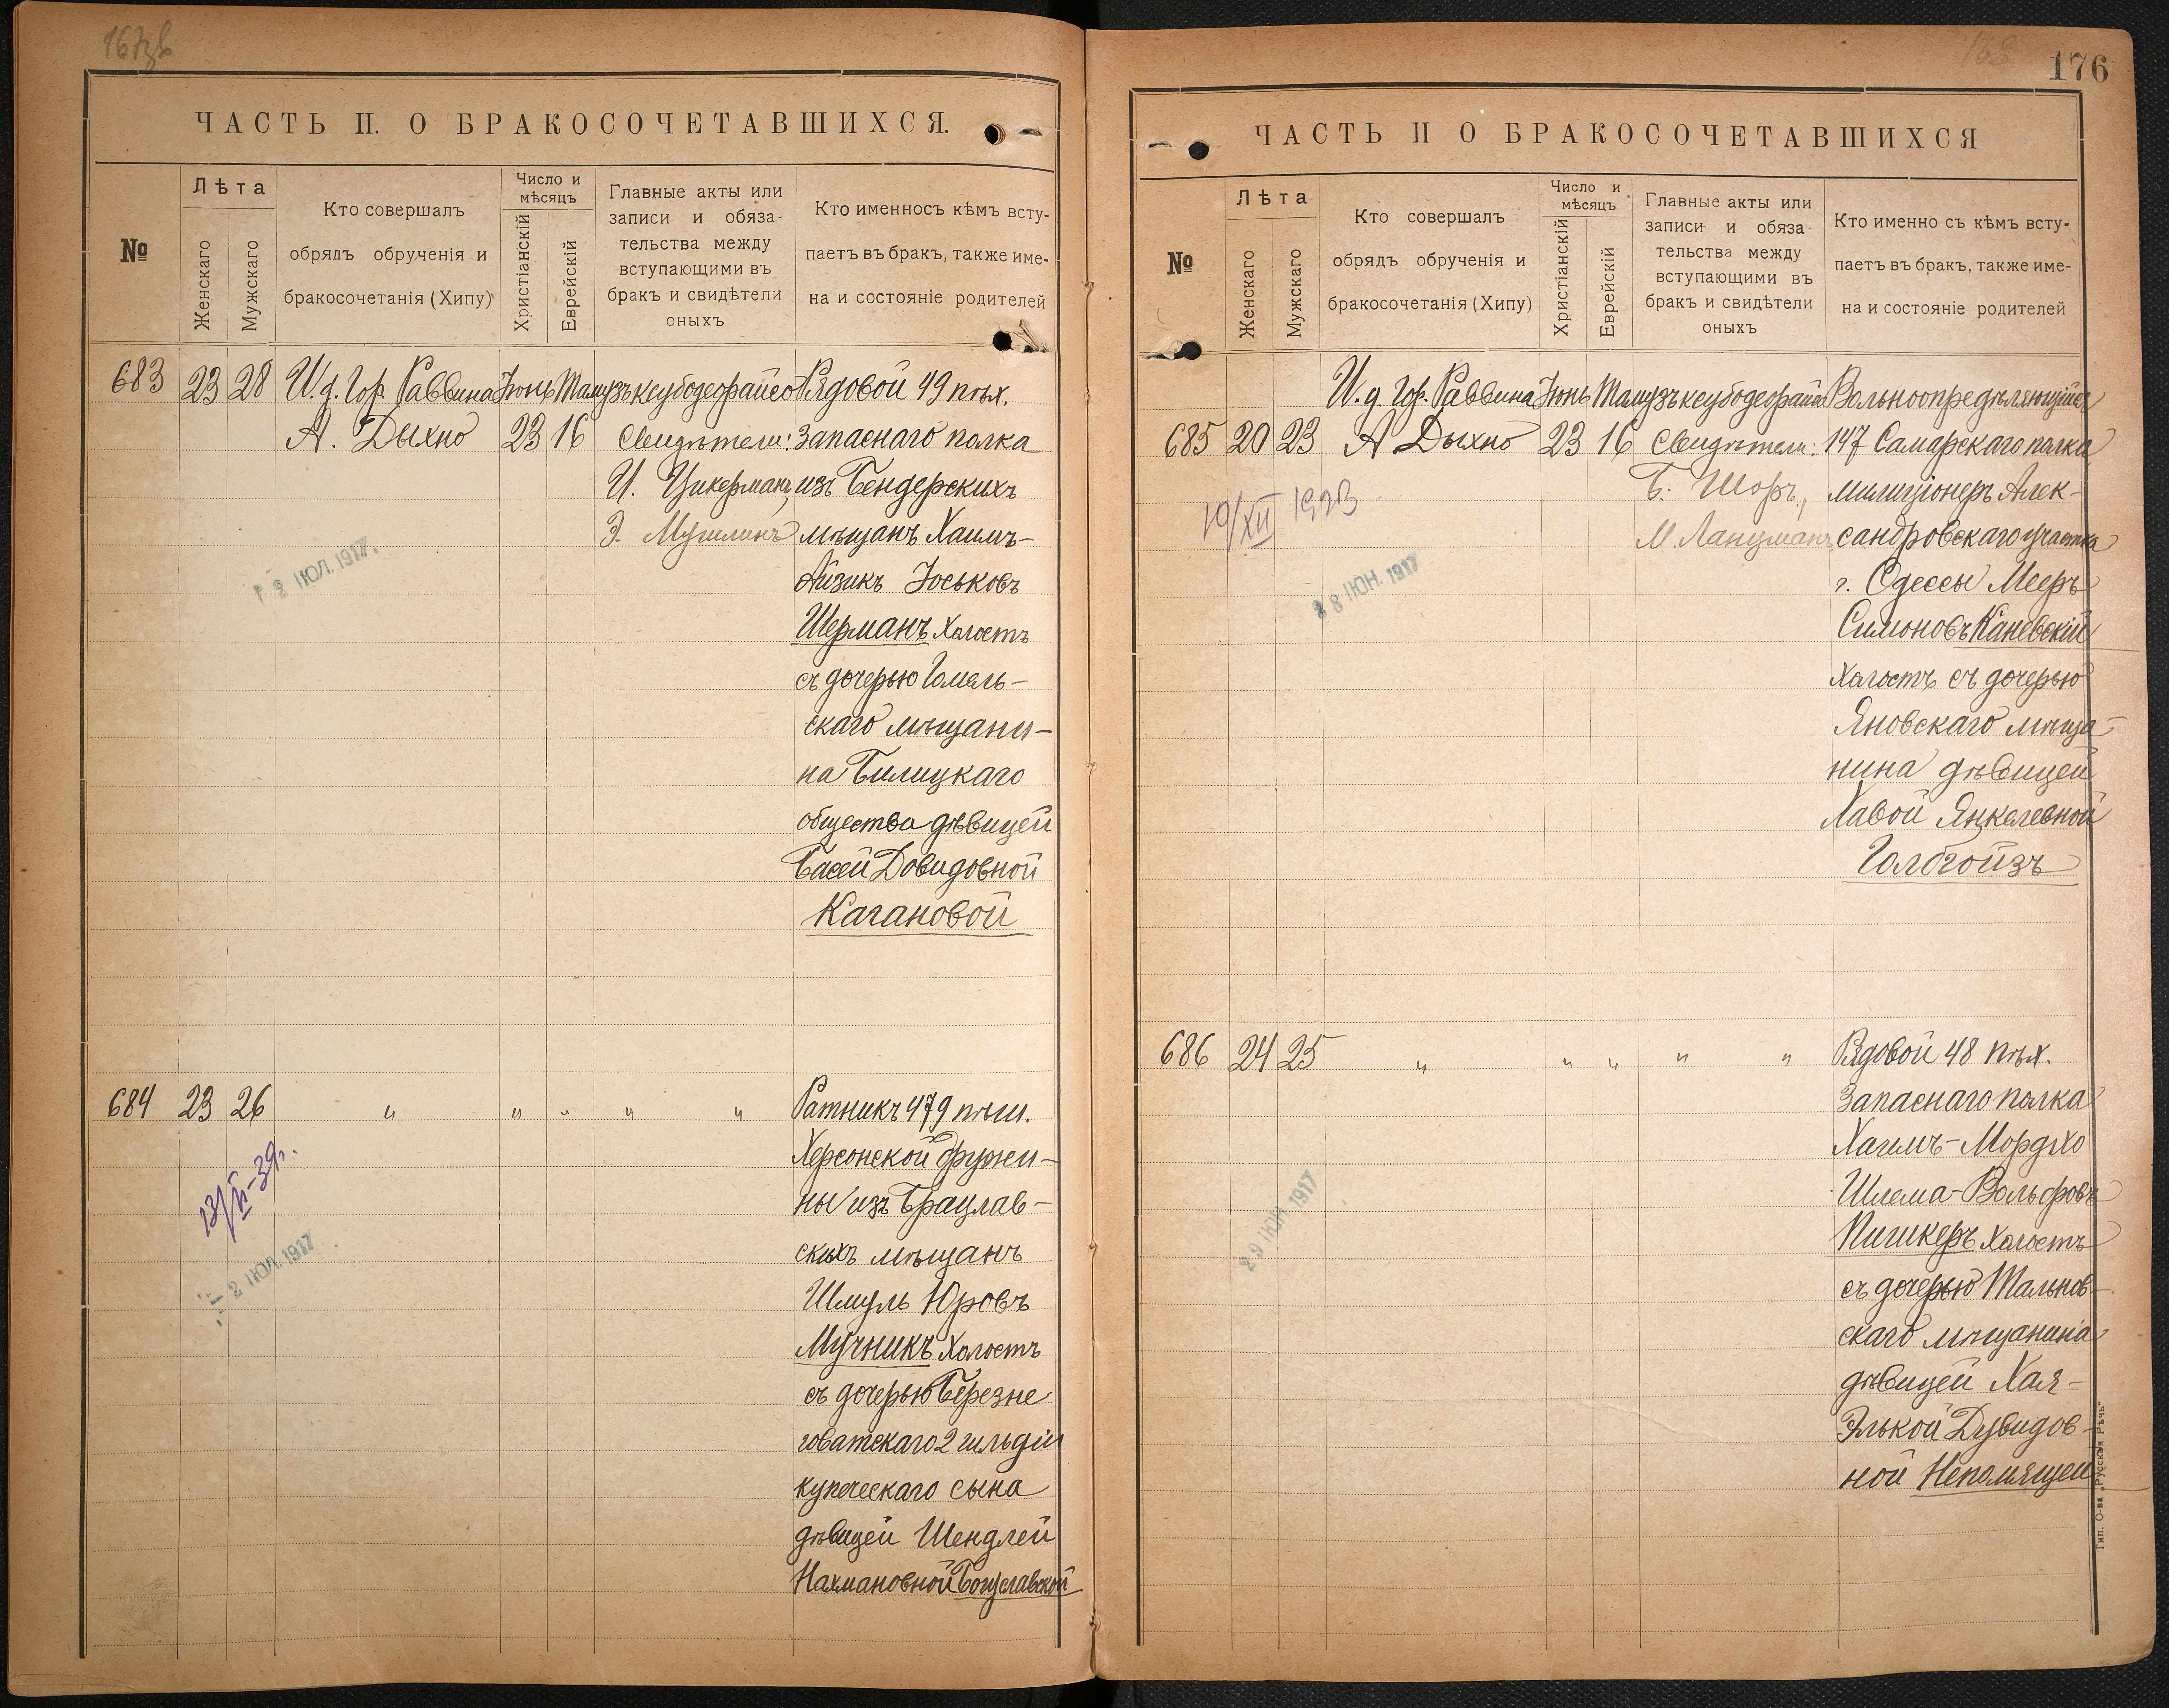 167об
ЧАСТЬ II. О БРАКОСОЧЕТАВШИХСЯ.
№
Лѣта
Женскаго
Мужскаго
Кто совершалъ
обрядъ обрученія и
бракосочетанія (Хипу)
Число и
мѣсяцъ
Христіанскій
Еврейскій
Главные акты или
записи и обяза-
тельства между
вступающими въ
бракъ и свидѣтели
оныхъ
Кто именносъ кѣмъ всту-
паетъ въ бракъ, также име-
на и состояніе родителей
683 23 28 И. д. Гор. Раввина Іюнь Тамузъ ксубодеорайсо Рядовой 49 пѣх.
А. Дыхно 23 16 Свидѣтели: запаснаго полка
И. Цикерманъ, изъ Бендерскихъ
Э. Мушлинъ мѣщанъ Хаимъ-
Айзикъ Іоськовъ
2 ІЮЛ. 1917.
Шерманъ холостъ
съ дочерью Гомель-
скаго мѣщани-
на Билицкаго
общества дѣвицей
Басей Довидовной
Кагановой
684 23 26 " " " " " Ратникъ 479 пѣш.
Херсонской дружи-
ны изъ Брацлав-
скихъ мѣщанъ
Шмуль Юровъ
Мучникъ холостъ
съ дочерью Березне
говатскаго 2 гильдіи
купеческаго сына
дѣвицей Шендлей
Нахмановной Богуславской
2 ІЮЛ. 1917
168
176
ЧАСТЬ II О БРАКОСОЧЕТАВШИХСЯ
№
Лѣта
Женскаго
Мужскаго
Кто совершалъ
обрядъ обрученія и
бракосочетанія (Хипу)
Число и
мѣсяцъ
Христіанскій
Еврейскій
Главные акты или
записи и обяза-
тельства между
вступающими въ
бракъ и свидѣтели
оныхъ
Кто именно съ кѣмъ всту-
паетъ въ бракъ, также име-
на и состояніе родителей
И. д. Гор. Раввина Іюнь Тамузъ ксубодеорайсо Вольноопредѣляющійся
685 20 23 А Дыхно 23 16 Свидѣтели: 147 Самарскаго полка
Б. Шоръ, милиціонеръ Алек-
10/XII 1923
М. Ланцманъ, сандровскаго участка
г. Одессы Мееръ
28 ІЮН. 1917
Симоновъ Каневскій
холостъ съ дочерью
Яновскаго мѣща-
нина дѣвицей
Хавой Янкелевной
Голбгойзъ
686 24 25 " " " " " Рядовой 48 пѣх.
Запаснаго полка
Хаимъ-Мордхо
Шлема-Вольфовъ
Пишкеръ холостъ
29 ІЮН 1917
съ дочерью Тальнов-
скаго мѣщанина
дѣвицей Хая-
Элькой Дувидов-
ной Непомящей
Тип. О-ва „Русская Рѣчь“